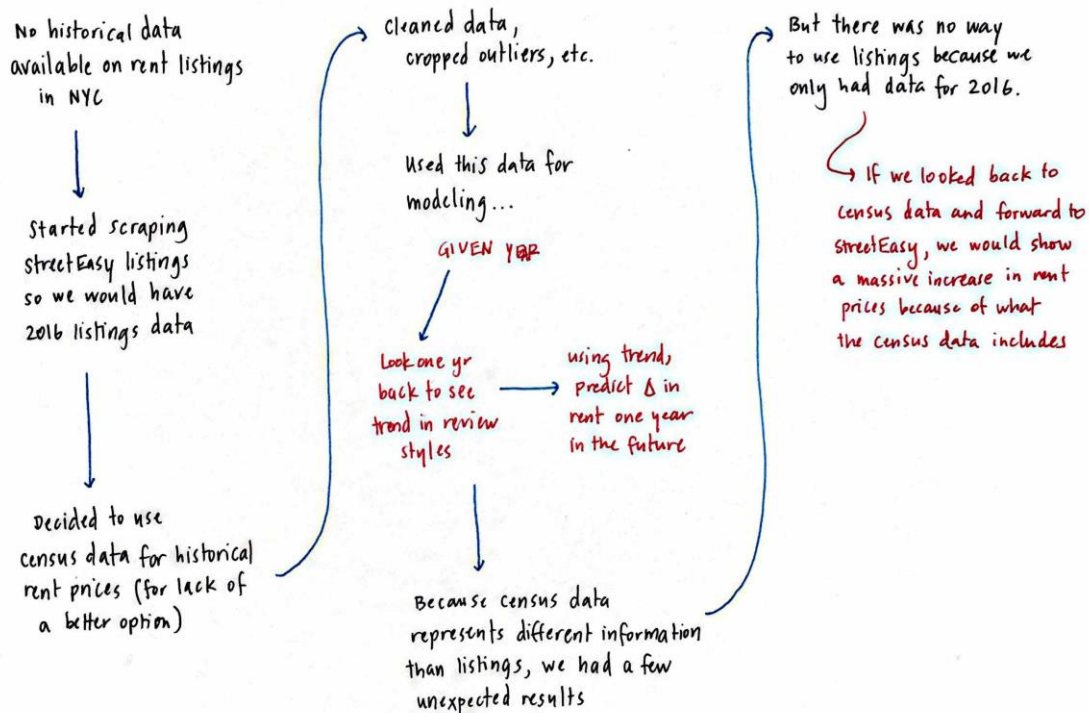 No historical data
available on rent listings
in NYC
Started scraping
StreetEasy listings
so we would have
2016 listings data
Decided to use
census data for historical
rent prices (for lack of
a better option)
Cleaned data,
cropped outliers, etc.
Used this data for
modeling...
GIVEN YEAR
Look one yr
back to see
trend in review
styles
using trend,
predict Δ in
rent one year
in the future
Because census data
represents different information
than listings, we had a few
unexpected results
But there was no way
to use listings because we
only had data for 2016.
If we looked back to
census data and forward to
StreetEasy, we would show
a massive increase in rent
prices because of what
the census data includes